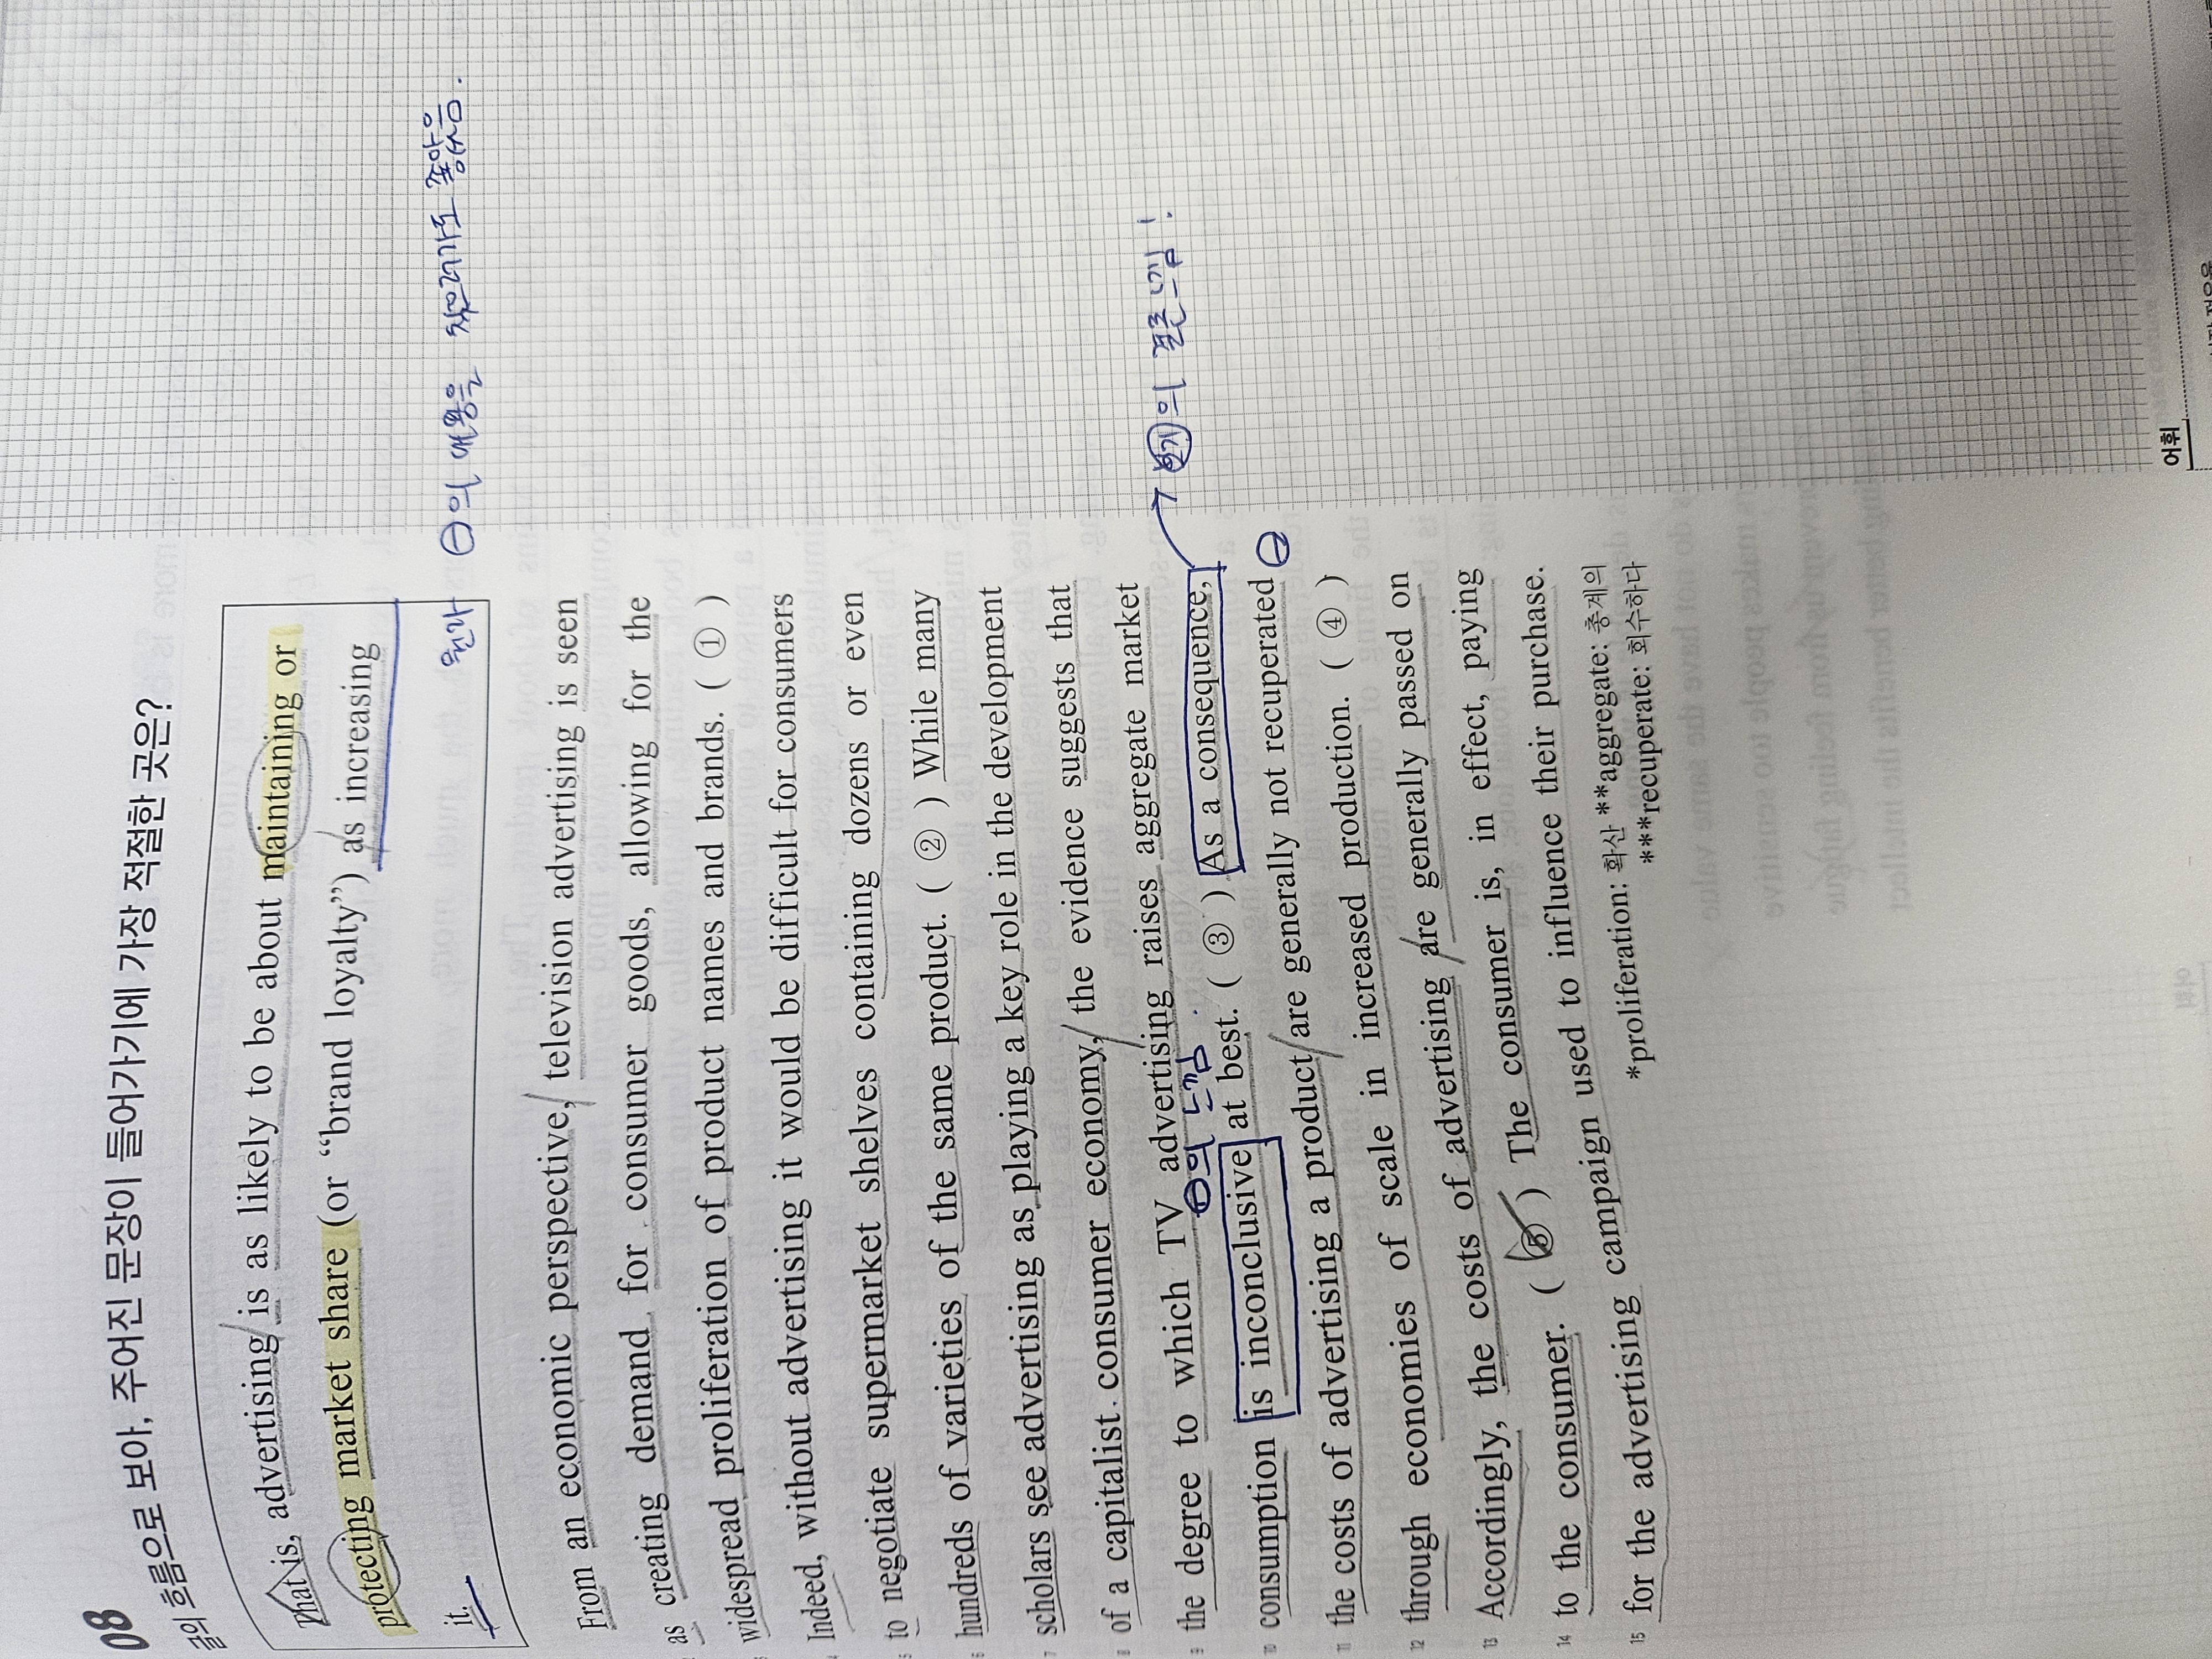 08
글의 흐름으로 보아, 주어진 문장이 들어가기에 가장 적절한 곳은?
That is, advertising is as likely to be about maintaining or
protecting market share (or “brand loyalty”) as increasing
it.
원가 ⊖의 내용을 찾으려가도 좋았음.
From an economic perspective, television advertising is seen
as creating demand for consumer goods, allowing for the
widespread proliferation of product names and brands. ( ① )
Indeed, without advertising it would be difficult for consumers
to negotiate supermarket shelves containing dozens or even
hundreds of varieties of the same product. ( ② ) While many
scholars see advertising as playing a key role in the development
of a capitalist consumer economy, the evidence suggests that
the degree to which TV advertising raises aggregate market
⊖의 느낌
consumption is inconclusive at best. ( ③ ) As a consequence,
→ 보기의 결론 느낌!
the costs of advertising a product are generally not recuperated ⊖
through economies of scale in increased production. ( ④ )
Accordingly, the costs of advertising are generally passed on
to the consumer. ( ⑤ ) The consumer is, in effect, paying
for the advertising campaign used to influence their purchase.
*proliferation: 확산 **aggregate: 총계의
***recuperate: 회수하다
어휘